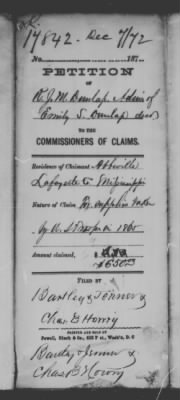 17842. Dec 7/72
No. 187
PETITION
OF
R. J. M. Dunlap Admr of
Emily S. Dunlap decd
TO THE
COMMISSIONERS OF CLAIMS.
Residence of Claimant Abbeville
Lafayette Co Mississippi
Nature of Claim For supplies taken
by U. S. Troops in 186
Amount claimed, $
FILED BY
Bartley &
Chas. B
PRINTED AND SOLD BY
Powell, & Co., Wash'n, D. C
Bartley &
Chas B